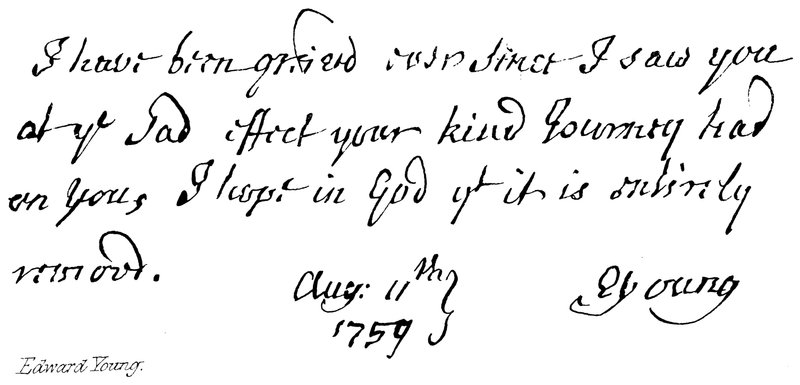 I have been greived ever since I saw you
at yᵉ Sad effect your kind Journey had
on you, I hope in God yᵗ it is entirely
removd.
Aug: 11th
1759
EYoung
Edward Young.